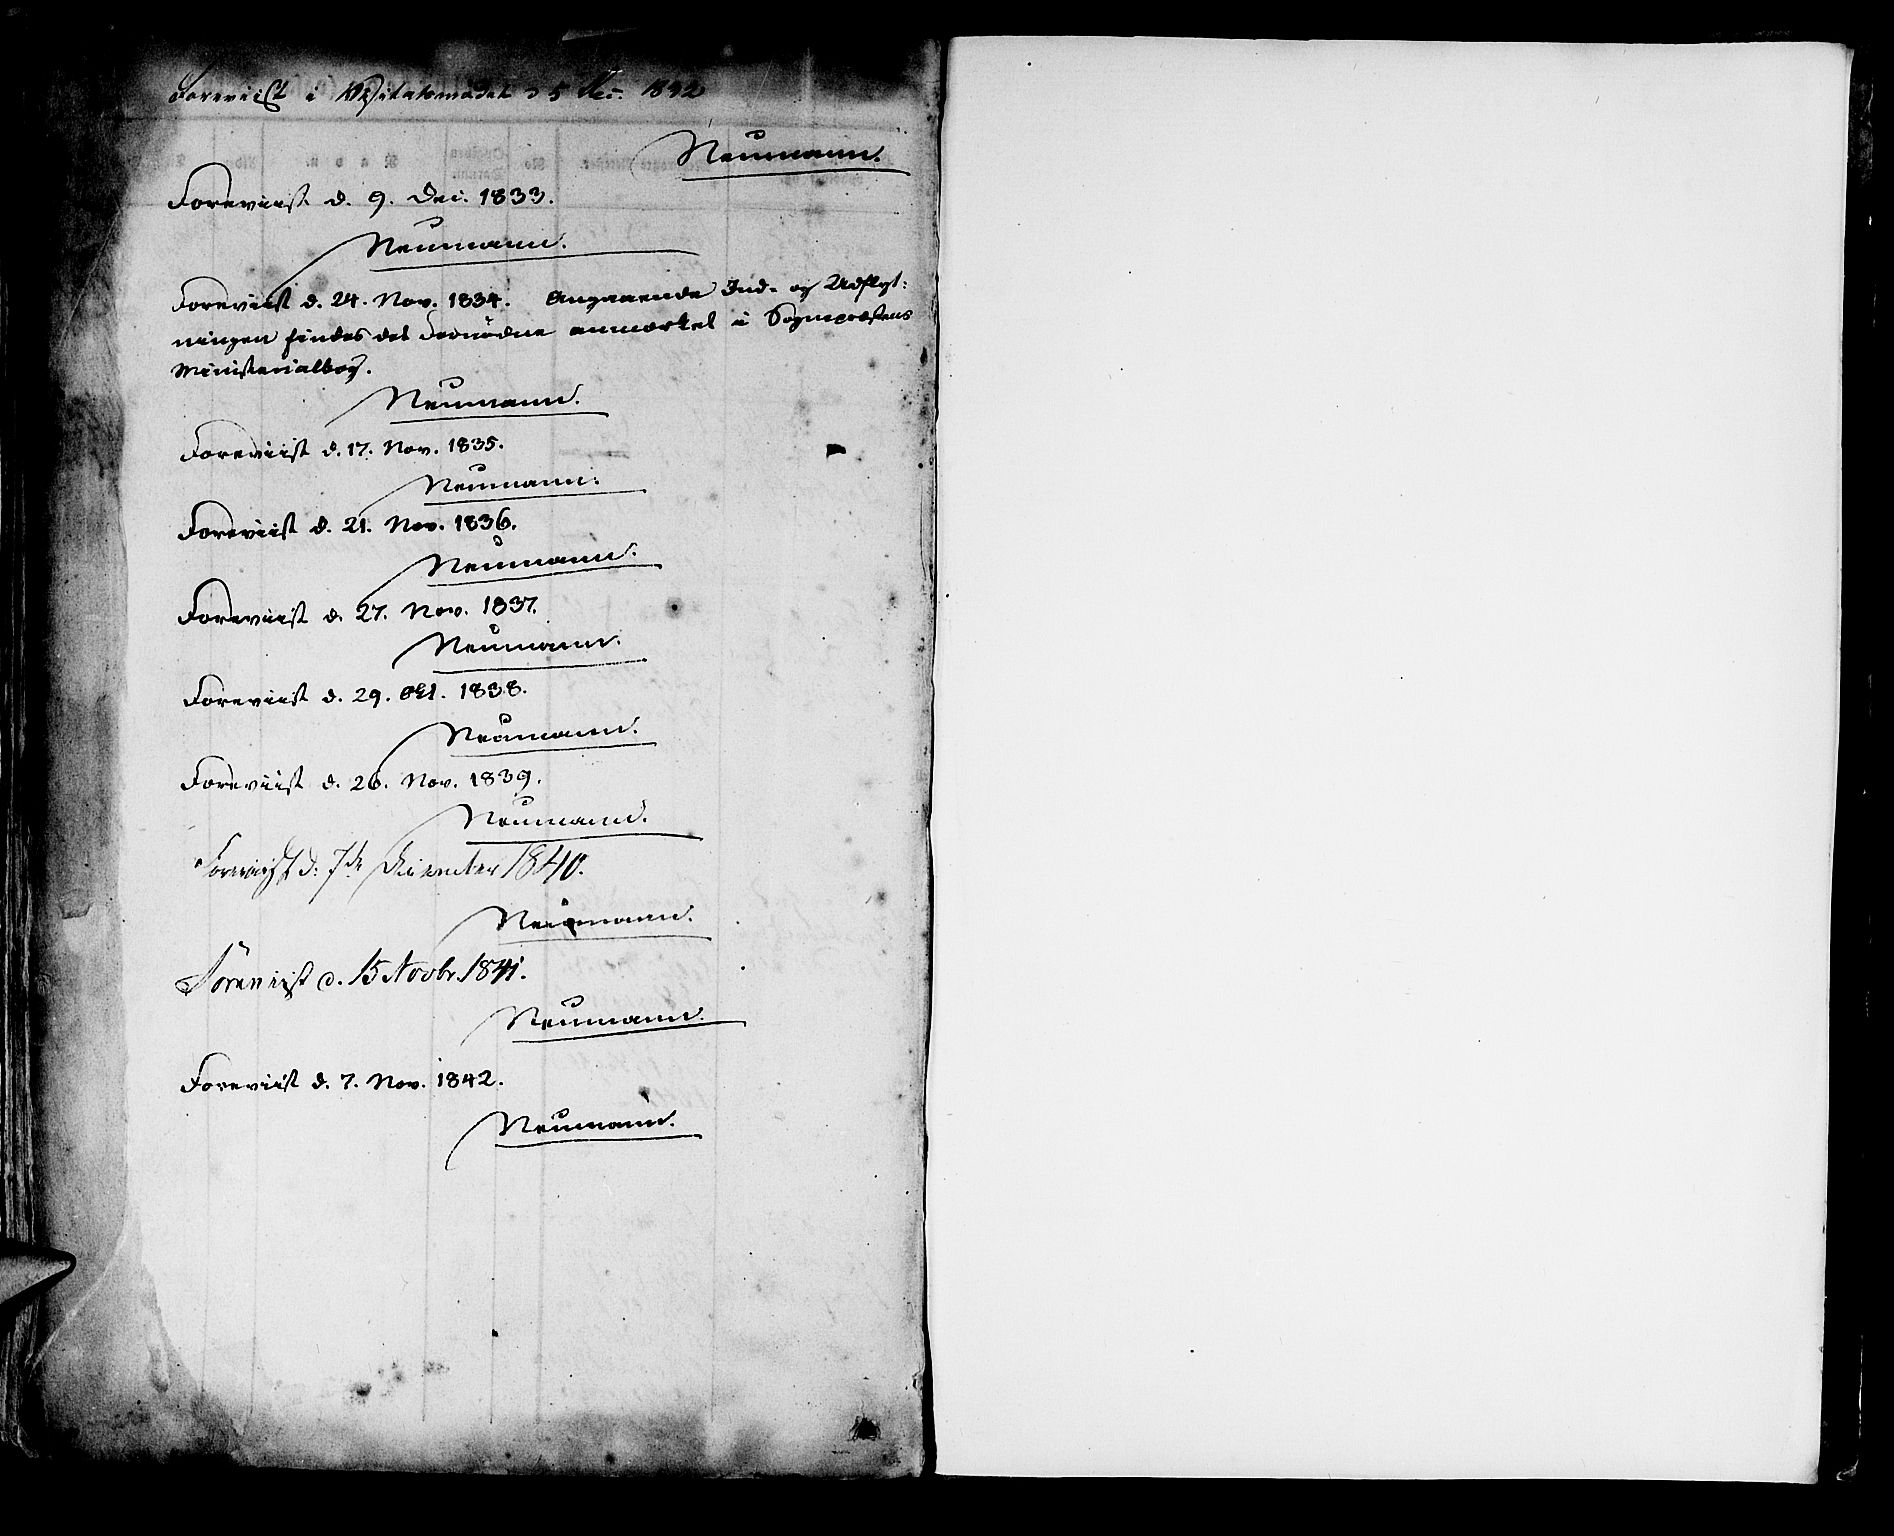 Foreviist i Visitatsmødet d 5 Dec. 1832
Neumann.
Foreviist d. 9. Dec. 1833.
Neumann.
Foreviist d. 24. Nov. 1834. Angaaende Ind- og Udflyt:
ningen findes det Fornødne anmærket i Sognepræstens
Ministerialbog.
Neumann.
Foreviist d. 17. Nov. 1835.
Neumann.
Foreviist d. 21. Nov. 1836.
Neumann.
Foreviist d. 27. Nov. 1837.
Neumann.
Foreviist d. 29. Oct. 1838.
Neumann.
Foreviist d. 26. Nov. 1839.
Neumann.
Foreviist d: 7de December 1840.
Neumann.
Foreviist d. 15 Novbr. 1841.
Neumann.
Foreviist d. 7. Nov. 1842.
Neumann.